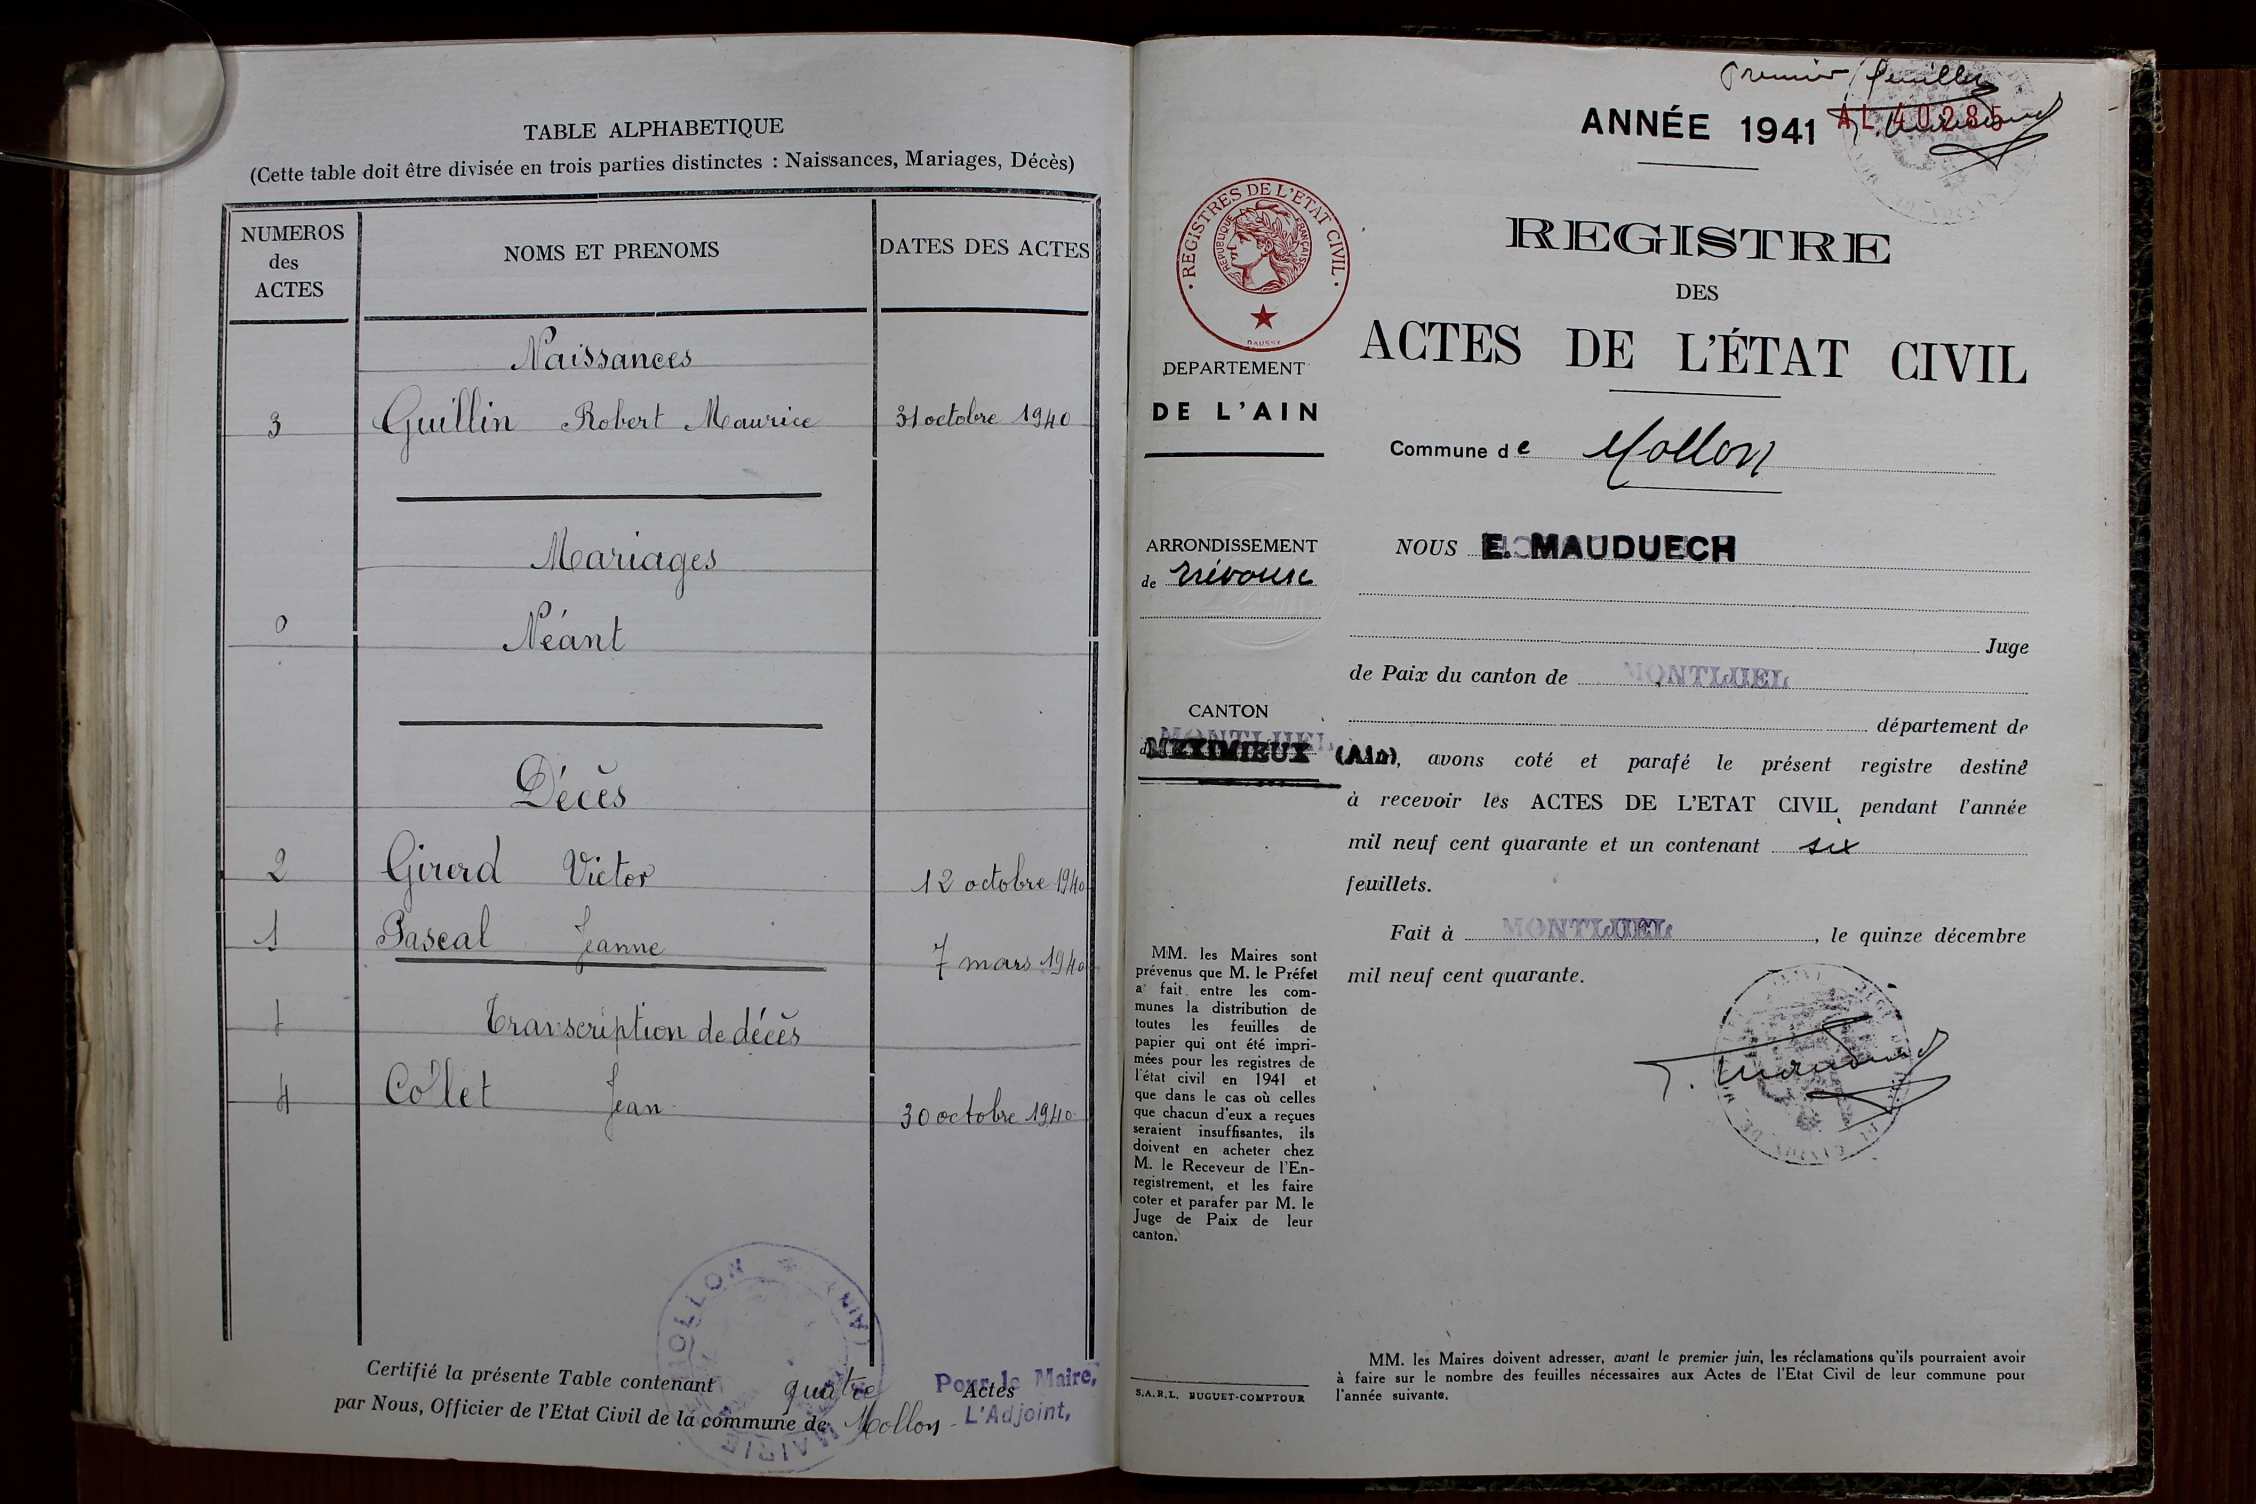 TABLE ALPHABETIQUE
(Cette table doit être divisée en trois parties distinctes : Naissances, Mariages, Décès)
NUMEROS
des
ACTES
NOMS ET PRENOMS
DATES DES ACTES
Naissances
3 Guillin Robert Maurice 31 octobre 1940
Mariages
0 Néant
Décès
2 Girerd Victor 12 octobre 1940
1 Pascal Jeanne 7 mars 1940
Transcription de décès
4 Collet Jean 30 octobre 1940
Certifié la présente Table contenant quatre Actes
par Nous, Officier de l'Etat Civil de la commune de Mollon
Pour le Maire,
L'Adjoint,
MAIRIE MOLLON * (AIN)
premier feuillet
ANNÉE 1941
AL 40285
REGISTRES DE L'ETAT CIVIL
REPUBLIQUE FRANÇAISE
REGISTRE
DES
ACTES DE L'ÉTAT CIVIL
DEPARTEMENT
DE L'AIN
Commune de Mollon
ARRONDISSEMENT
de Trévoux
CANTON
MONTLUEL
MEXIMIEUX (Ain)
NOUS E. MAUDUECH
Juge
de Paix du canton de MONTLUEL
département de
, avons coté et parafé le présent registre destiné
à recevoir les ACTES DE L'ETAT CIVIL pendant l'année
mil neuf cent quarante et un contenant six
feuillets.
Fait à MONTLUEL, le quinze décembre
mil neuf cent quarante.
MM. les Maires sont
prévenus que M. le Préfet
a fait entre les com-
munes la distribution de
toutes les feuilles de
papier qui ont été impri-
mées pour les registres de
l'état civil en 1941 et
que dans le cas où celles
que chacun d'eux a reçues
seraient insuffisantes, ils
doivent en acheter chez
M. le Receveur de l'En-
registrement, et les faire
coter et parafer par M. le
Juge de Paix de leur
canton.
S.A.R.L. BUGUET-COMPTOUR
MM. les Maires doivent adresser, avant le premier juin, les réclamations qu'ils pourraient avoir
à faire sur le nombre des feuilles nécessaires aux Actes de l'Etat Civil de leur commune pour
l'année suivante.